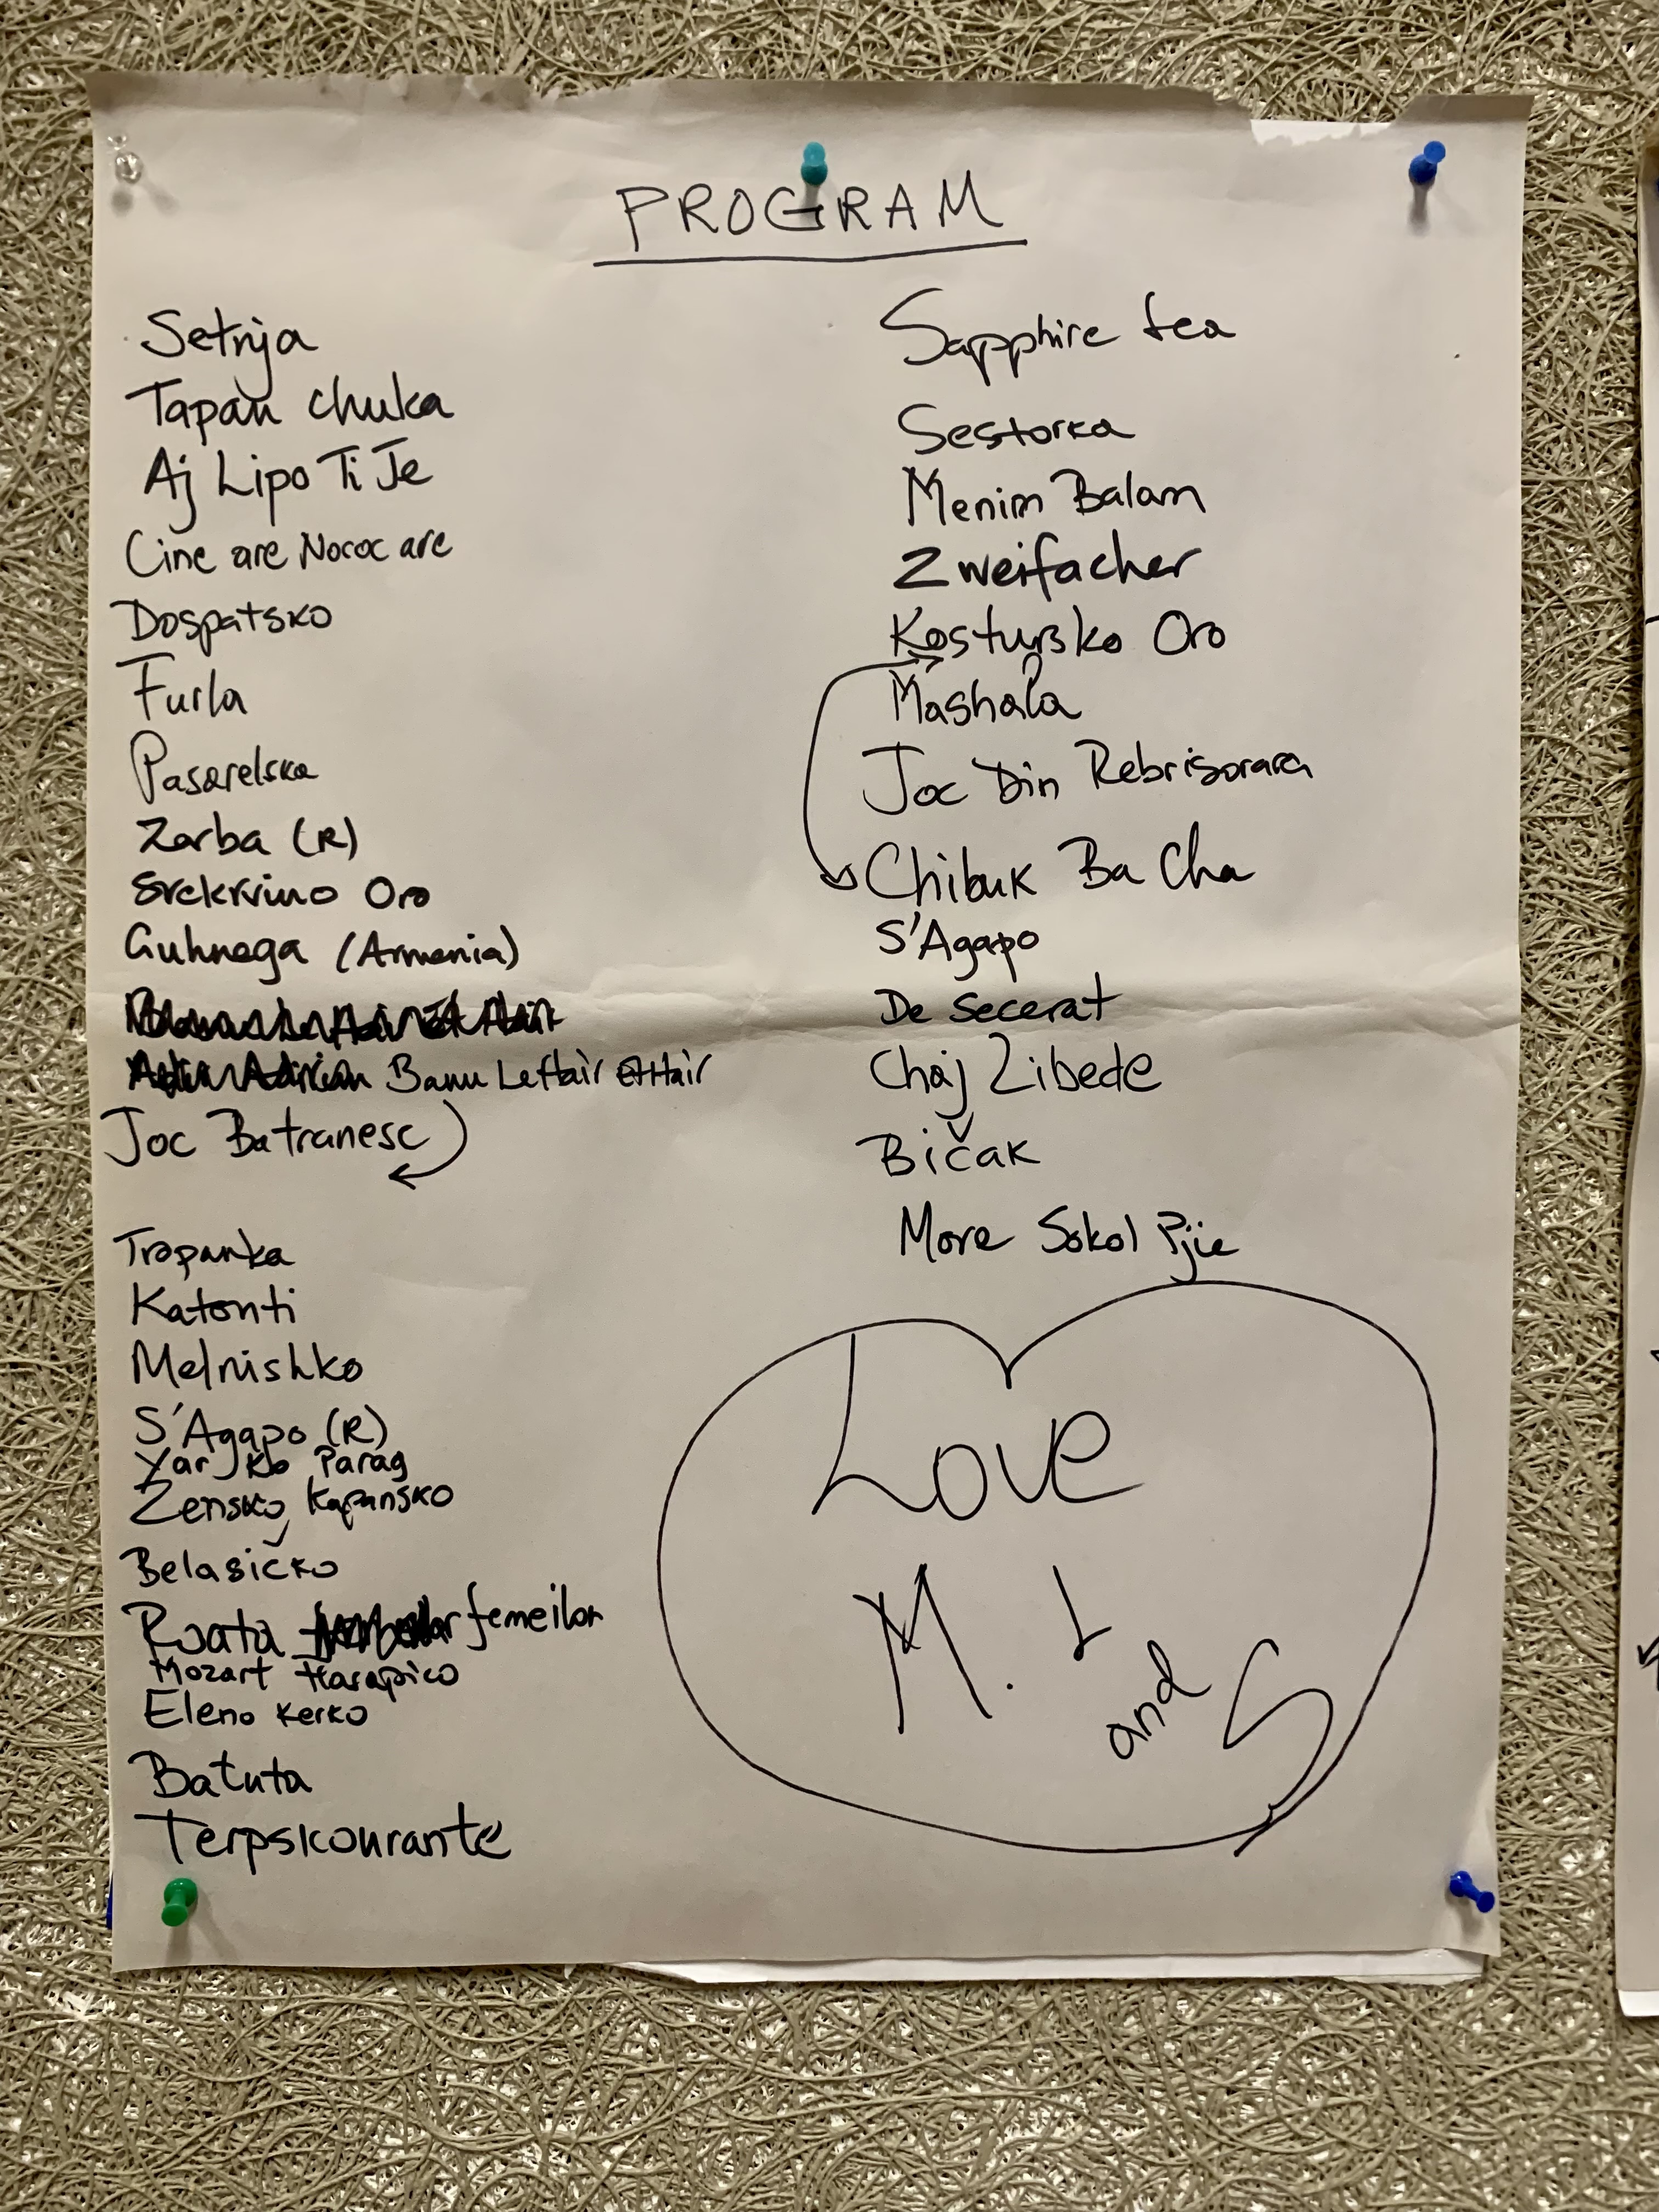 PROGRAM
Setnja
Tapan chuka
Aj Lipo Ti Je
Cine are Noroc are
Dospatsko
Furla
Pasarelska
Zorba (R)
Svekrvino Oro
Guhnega (Armenia)
Banu Leftair
Joc Batranesc
Tropanka
Katonti
Melnishko
S'Agapo (R)
Yar Ko Parag
Zensko Kapansko
Belasičko
Roata femeilor
Mozart Harapico
Eleno Kerko
Batuta
Terpsikourante
Sapphire tea
Sestorka
Menim Balam
Zweifacher
Kostursko Oro
Mashala
Joc Din Rebrisorara
Chibuk Ba Cha
S'Agapo
De Secerat
Chaj Zibede
Bičak
More Sokol Pjie
Love
M. L
and S